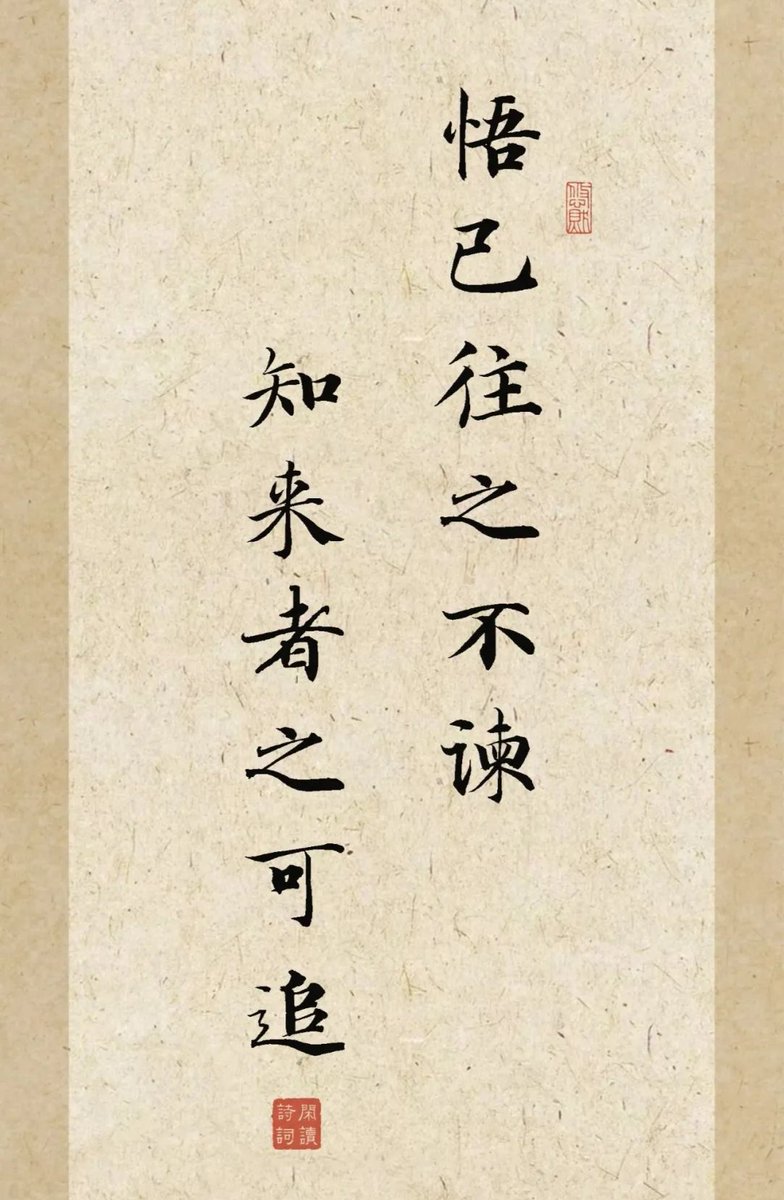 悟已往之不谏
知来者之可追
閑讀
詩詞